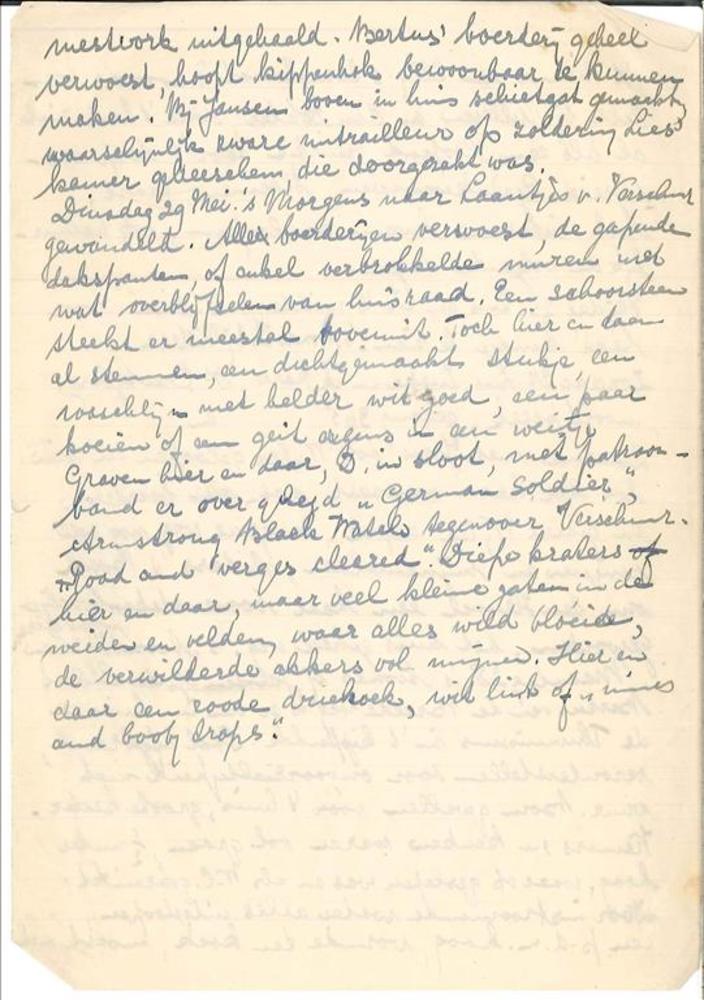 mestvork uitgehaald. Bertus' boerderij geheel
verwoest, hoopt kippenhok bewoonbaar te kunnen
maken. Bij Jansen boven in huis schietgat gemaakt,
waarschijnlijk zware mitrailleur op zoldering Lies'
kamer die doorgezakt was.
Dinsdag 29 Mei. 's Morgens naar Laantjes v. Verschuur
gewandeld. Alles boerderijen verwoest, de gapende
dakspanten, of enkel verbrokkelde muren met
wat overblijfselen van huisraad. Een schoorsteen
steekt er meestal bovenuit. Toch hier en daar
al stemmen, een dichtgemaakt stukje, een
waschlijn met helder wit goed, een paar
koeien of een geit ergens in een weitje
Graven hier en daar, D. in sloot, met patroon-
band er over gelegd „German Soldier",
Armstrong Black Watch tegenover Verschuur.
„Road and verges cleared". Diepe kraters of
hier en daar, maar veel kleine gaten in de
weiden en velden, waar alles wild bloeide,
de verwilderde akkers vol mijnen. Hier en
daar een roode driehoek, wit lint of „mines
and booby traps."